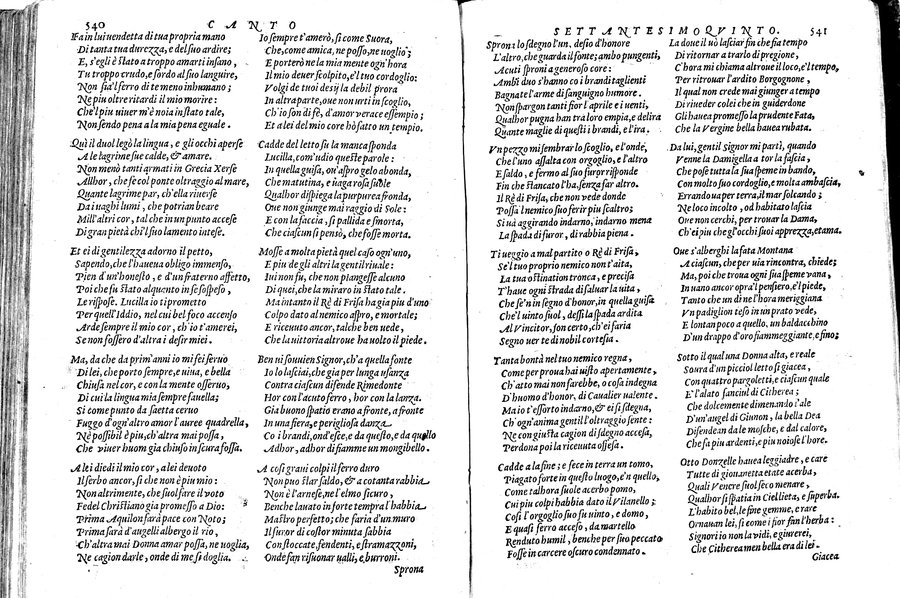 540
CANTO
Fa in lui uendetta di tua propria mano
Di tanta tua durezza, e del suo ardire;
E, s'egli è stato a troppo amarti insano,
Tu troppo crudo, e sordo al suo languire,
Non sia'l ferro di te meno inhumano;
Ne piu oltre ritardi il mio morire:
Che'l piu uiuer m'è noia in stato tale,
Non sendo pena a la mia pena eguale.
Quì il duol legò la lingua, e gli occhi aperse
A le lagrime sue calde, & amare.
Non menò tanti armati in Grecia Xerse
Allhor, che fe col ponte oltraggio al mare,
Quante lagrime par, ch'ella riuerse
Da i uaghi lumi, che potrian beare
Mill'altri cor, tal che in un punto accese
Di gran pietà chi'l suo lamento intese.
Et ei di gentilezza adorno il petto,
Sapendo, che l'haueua obligo immenso,
Pien d'un'honesto, e d'un fraterno affetto,
Poi che fu stato alquento in se sospeso,
Le rispose. Lucilla io ti prometto
Per quell'Iddio, nel cui bel foco accenso
Arde sempre il mio cor, ch'io t'amerei,
Se non fossero d'altra i desir miei.
Ma, da che da prim'anni io mi fei seruo
Di lei, che porto sempre, e uiua, e bella
Chiusa nel cor, e con la mente osseruo,
Di cui la lingua mia sempre fauella;
Si come punto da saetta ceruo
Fuggo d'ogn'altro amor l'auree quadrella,
Nè possibil è piu, ch'altra mai possa,
Che viuer huom gia chiuso in scura fossa.
A lei diedi il mio cor, a lei deuoto
Il serbo ancor, si che non è più mio;
Non altrimente, che suol fare il voto
Fedel Christiano gia promesso a Dio:
Prima Aquilon farà pace con Noto;
Prima sarà d'augelli albergo il rio,
Ch'altra mai Donna amar possa, ne uoglia,
Ne cagion darle, onde di me si doglia.
Io sempre t'amerò, si come Suora,
Che, come amica, ne posso, ne uoglio;
E porterò ne la mia mente ogn'hora
Il mio deuer scolpito, e'l tuo cordoglio:
Volgi de tuoi desij la debil prora
In altra parte, oue non urti in scoglio,
Ch'io son di fè, d'amor verace essempio;
Et a lei del mio core hò fatto un tempio.
Cadde del letto su la manca sponda
Lucilla, com'udio queste parole:
In quella guisa, ou'aspro gelo abonda,
Che matutina, e uaga rosa suole
Qualhor dispiega la purpurea fronda,
Oue non giunge mai raggio di Sole:
E con la faccia, si pallida e smorta,
Che ciascun si pensò, che fosse morta.
Mosse a molta pietà quel caso ogn'uno,
E piu de gli altri la gentil riuale:
Iui non fu, che non piangesse alcuno
Di quei, che la miraro in stato tale.
Ma intanto il Rè di Frisa hagia piu d'uno
Colpo dato al nemico aspro, e mortale;
E riceuuto ancor, talche ben uede,
Che la uittoria altroue ha uolto il piede.
Ben ui souuien Signor, ch'a quella fonte
Io lo lasciai, che gia per lunga usanza
Contra ciascun difende Rimedonte
Hor con l'acuto ferro, hor con la lanza.
Gia buono spatio erano a fronte, a fronte
In una fiera, e perigliosa danza
Co i brandi, ond'esce, e da questo, e da quello
Adhor, adhor di fiamme un mongibello.
A cosi graui colpi il ferro duro
Non può star saldo, & a cotanta rabbia
Non è l'arnese, ne l'elmo sicuro,
Benche lauato in forte tempra l'habbia
Mastro perfetto; che faria d'un muro
Il furor di costor minuta sabbia
Con stoccate, fendenti, e stramazzoni,
Onde fan risuonar ualli, e burroni.
Sprona
SETTANTESIMOQVINTO.
541
Spron: lo sdegno l'un, desio d'honore
L'altro, che guarda il fonte; ambo pungenti,
Acuti sproni a generoso core:
Ambi duo s'hanno co i brandi taglienti
Bagnate l'arme di sanguigno humore.
Non spargon tanti fior l'aprile e i uenti,
Qualhor pugnan hor tra loro empia, e delira
Quante maglie di questi i brandi, e l'ira.
Vn pezzo mi sembrar lo scoglio, e l'onde,
Che l'uno assalta con orgoglio, e l'altro
E saldo, e fermo al suo furor risponde
Fin che stancato l'ha, senza far altro.
Il Rè di Frisa, che non vede donde
Possa'l nemico suo ferir piu scaltro;
Si uà aggirando indarno, indarno mena
La spada di furor, di rabbia piena.
Ti ueggio a mal partito o Rè di Frisa,
Se'l tuo proprio nemico non t'aita,
La tua ostination tronca, e precisa
T'haue ogni strada di saluar la uita,
Che se'n in segno d'honor, in quella guisa
Che l'uinto suol, dessi la spada ardita
Al Vincitor, son certo, ch'ei faria
Segno uer te di nobil cortesia.
Tanta bontà nel tuo nemico regna,
Come per proua hai uisto apertamente,
Ch'atto mai non farebbe, o cosa indegna
D'huomo d'honor, di Caualier ualente.
Ma io t'essorto indarno, & ei si sdegna,
Ch'ogn'anima gentil l'oltraggio sente:
Ne con giusta cagion di sdegno accesa,
Perdona poi la riceuuta offesa.
Cadde a la fine; e fece in terra un tomo,
Piagato forte in questo luogo, e'n quello,
Come talhora suole acerbo pomo,
Cui piu colpi habbia dato il Vilanello;
Cosi l'orgoglio suo fu uinto, e domo,
E quasi ferro acceso, da martello
Renduto humil, benche per suo peccato
Fosse in carcere oscuro condennato.
La doue il uò lasciar fin che fia tempo
Di ritornar a trarlo di pregione,
C'hora mi chiama altroue il loco, e'l tempo,
Per ritrouar l'ardito Borgognone,
Il qual non crede mai giunger a tempo
Di riueder colei che in guiderdone
Gli hauea promesso la prudente Fata,
Che la Vergine bella hauea rubata.
Da lui, gentil signor mi parti, quando
Venne la Damigella a tor la fascia,
Che pose tutta la sua speme in bando,
Con molto suo cordoglio, e molta ambascia,
Errando ua per terra, il mar solcando;
Ne loco incolto, od habitato lascia
Oue non cerchi, per trouar la Dama,
Ch'ei piu che gl'occhi suoi apprezza, et ama.
Oue s'alberghi la fata Montana
A ciascun, che per uia rincontra, chiede;
Ma, poi che troua ogni sua speme vana,
In uano ancor opra'l pensiero, e'l piede,
Tanto che un dì ne l'hora meriggiana
Vn padiglion teso in un prato vede,
E lontan poco a quello, un baldacchino
D'un drappo d'oro fiammeggiante, e fino;
Sotto il qual una Donna alta, e reale
Soura d'un picciol letto si giacea,
Con quattro pargoletti, e ciascun quale
E'l alato fanciul di Citherea;
Che dolcemente dimenando l'ale
D'un'angel di Giunon, la bella Dea
Difendean da le mosche, e dal calore,
Che fa piu ardenti, e piu noiose l'hore.
Otto Donzelle hauea leggiadre, e care
Tutte di giouanetta etate acerba,
Quali Venere suol seco menare,
Qualhor si spatia in Cielieta, e superba.
L'habito bel, le fine gemme, e rare
Ornauan lei, si come i fior fin l'herba:
Signori io non la vidi, e giurerei,
Che Citherea men bella era di lei.
Giacea